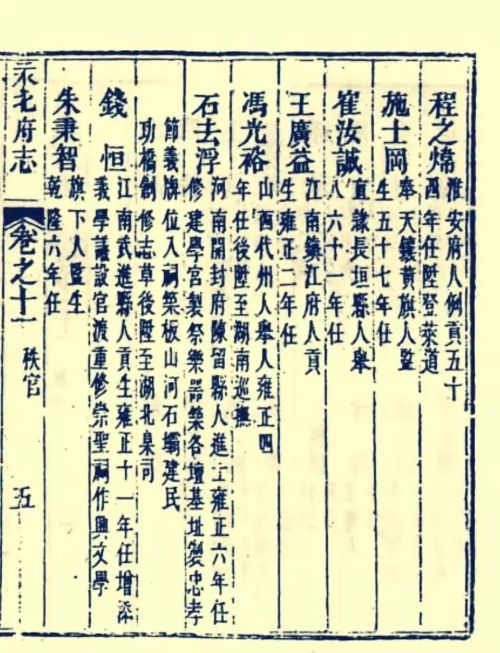 程之
淮安府人例貢五十
四年任陞登萊道
施士岡
奉天鑲黃旗人監
生五十七年任
崔汝誠
直隸長垣縣人舉
人六十一年任
王廣益
江南鎮江府人貢
生雍正二年任
馮光裕
山西代州人舉人雍正四
年任後陞至湖南巡撫
石去浮
河南開封府陳留縣人進士雍正六年任
修建學宮製祭樂器築各壇基址製忠孝
節義牌位入祠築板山河石壩建民
功橋創修志草後陞至湖北臬司
錢恒
江南武進縣人貢生雍正十一年任增添
義學議設官渡重修崇聖祠作興文學
朱秉智
旗下人監生
乾隆六年任
永北府志 卷之十一 秩官 五